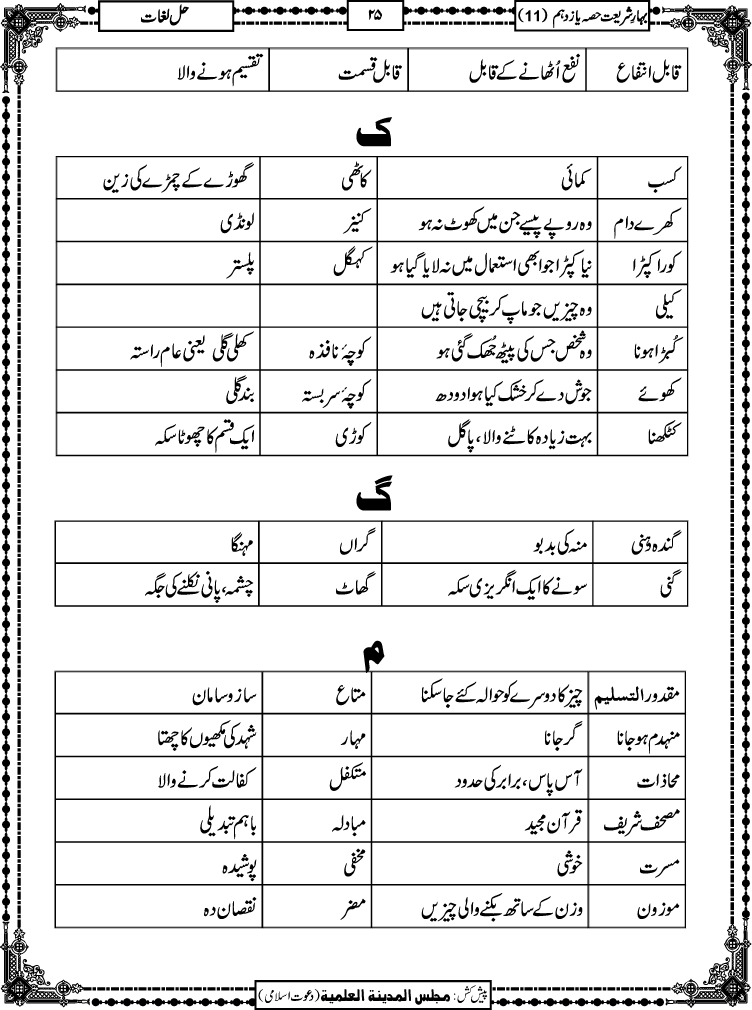 بہارِ شریعت حصہ یازدہم (11) ۲۵ حل لغات
قابل انتفاع نفع اُٹھانے کے قابل قابل قسمت تقسیم ہونے والا
ک
کسب کمائی کاٹھی گھوڑے کے چمڑے کی زین
کھرے دام وہ روپے پیسے جن میں کھوٹ نہ ہو کنیز لونڈی
کورا کپڑا نیا کپڑا جو ابھی استعمال میں نہ لایا گیا ہو کہگل پلستر
کیلی وہ چیزیں جو ماپ کر بیچی جاتی ہیں
کُبڑا ہونا وہ شخص جس کی پیٹھ جُھک گئی ہو کوچۂ نافذہ کھلی گلی یعنی عام راستہ
کھوئے جوش دے کر خشک کیا ہوا دودھ کوچۂ سربستہ بند گلی
کٹکھنا بہت زیادہ کاٹنے والا، پاگل کوڑی ایک قسم کا چھوٹا سکہ
گ
گندہ دہنی منہ کی بدبو گراں مہنگا
گنی سونے کا ایک انگریزی سکہ گھاٹ چشمہ، پانی نکلنے کی جگہ
م
مقدور التسلیم چیز کا دوسرے کو حوالہ کئے جا سکنا متاع ساز و سامان
منہدم ہو جانا گر جانا مہار شہد کی مکھیوں کا چھتا
محاذات آس پاس، برابر کی حدود متکفل کفالت کرنے والا
مصحف شریف قرآن مجید مبادلہ باہم تبدیلی
مسرت خوشی مخفی پوشیدہ
موزون وزن کے ساتھ بکنے والی چیزیں مضر نقصان دہ
پیش کش: مجلس المدینۃ العلمیۃ (دعوت اسلامی)